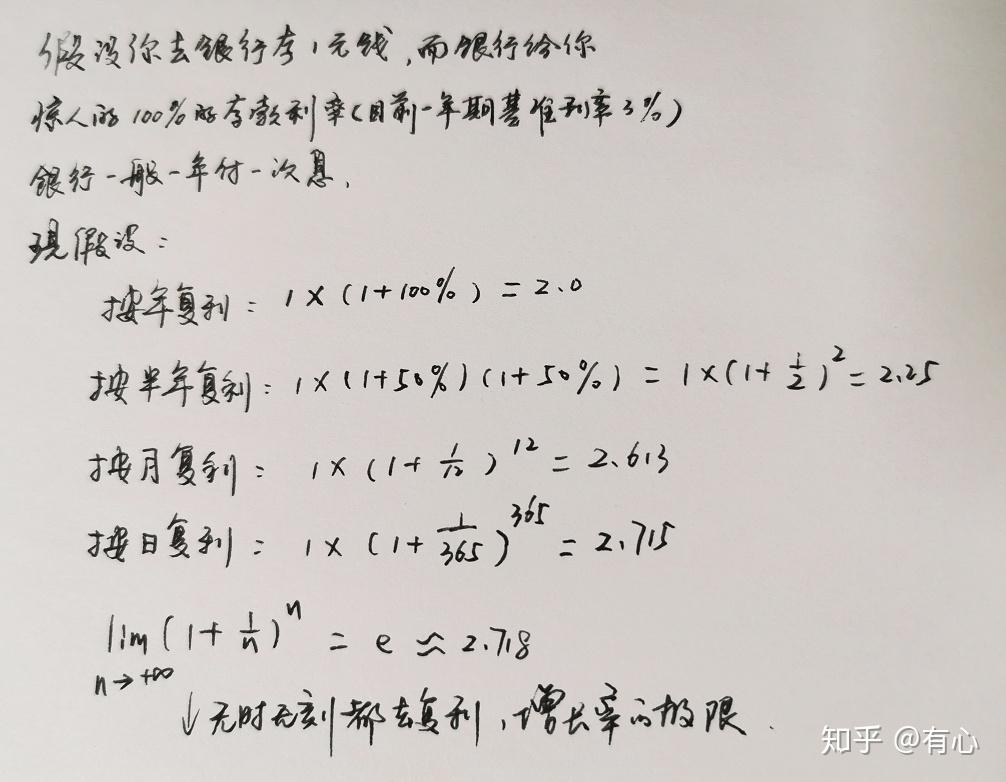 假设你去银行存1元钱,而银行给你
惊人的100%的存款利率(目前一年期基准利率3%)
银行一般一年付一次息.
现假设:
按年复利: 1×(1+100%)=2.0
按半年复利: 1×(1+50%)(1+50%)=1×(1+1/2)^2=2.25
按月复利: 1×(1+1/12)^12=2.613
按日复利: 1×(1+1/365)^365=2.715
lim(1+1/n)^n = e ≈ 2.718
n→+∞
↓无时无刻都在复利,增长率的极限.
知乎 @有心